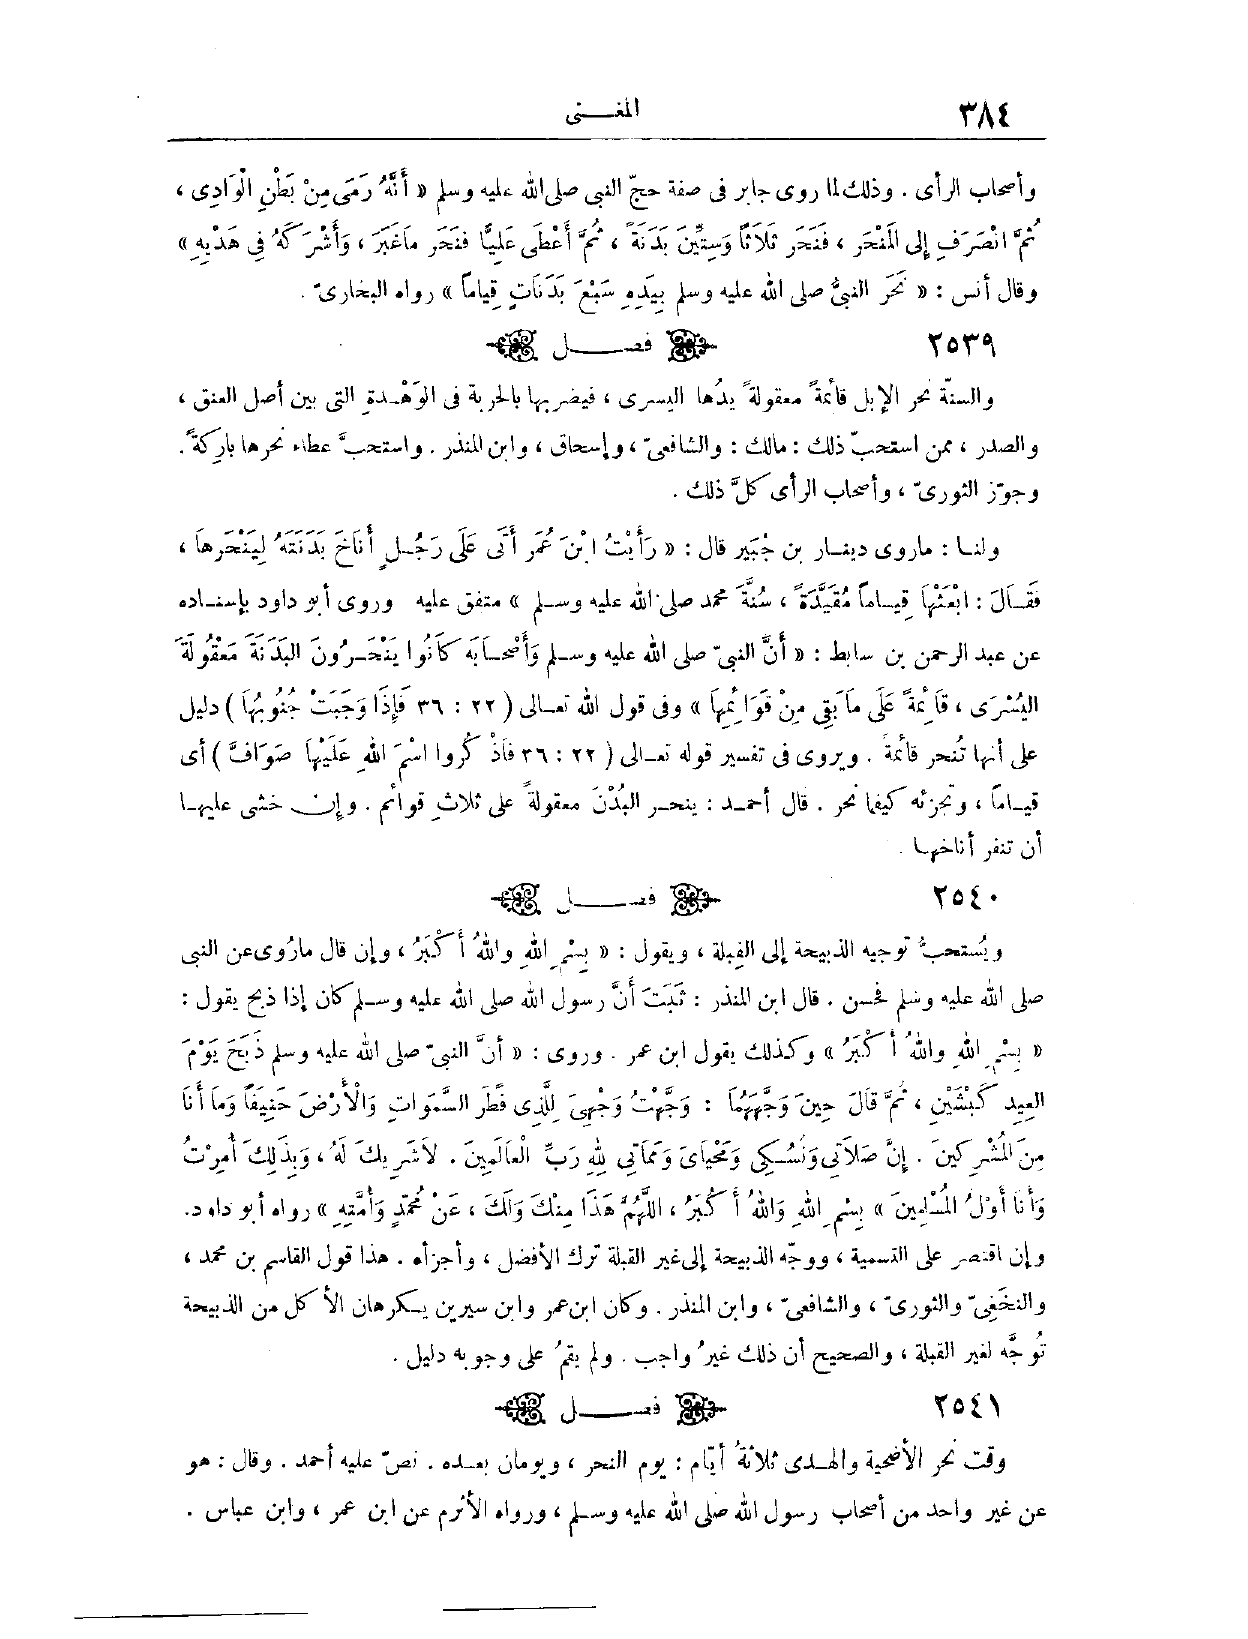 ٣٨٤
المغــنى
وأصحاب الرأى . وذلك لما روى جابر فى صفة حجّ النبى صلى الله عليه وسلم « أَنَّهُ رَمَى مِنْ بَطْنِ الْوَادِى ،
ثُمَّ انْصَرَفَ إلى المَنْحَر ، فَنَحَر ثَلاَثاً وَسِتِّينَ بَدَنَةً ، ثُمَّ أَعْطَى عَلِيًّا فنَحَر ماغَبَرَ ، وَأَشْرَكَهُ فِى هَدْيِهِ »
وقال أنس : « نَحَر النبىُّ صلى الله عليه وسلم بِيَدِهِ سَبْعَ بَدَنَاتٍ قِياماً » رواه البخارىّ .
٢٥٣٩
فصــل
والسنّة نحر الإبل قائمةً معقولةً يدُها اليسرى ، فيضربها بالحربة فى الوَهْـدةِ التى بين أصل العنق ،
والصدر ، ممن استحبّ ذلك : مالك : والشافعىّ ، وإسحاق ، وابن المنذر . واستحبَّ عطاء نحرها باركةً .
وجوّز الثورىّ ، وأصحاب الرأى كلَّ ذلك .
ولنـا : ماروى دينـار بن جُبَير قال : « رَأَيْتُ ابْنَ عُمَر أَتَى عَلَى رَجُـلٍ أَنَاخَ بَدَنَتَهُ لِيَنْحَرهاَ ،
فقـالَ : ابْعَثْهاَ قِيـاماً مُقَيَّدَةً ، سُنَّةَ محمد صلى الله عليه وسـلم » متفق عليه وروى أبو داود بإسنـاده
عن عبد الرحمن بن سابط : « أنَّ النبىّ صلى الله عليه وسـلم وَأَصْحـاَبَه كَانُوا يَنْحَـرُونَ البَدَنَةَ مَعْقُولَةَ
اليُسْرَى ، قاَئِمَةً عَلَى ماَبَقِىَ مِنْ قَوَائِمِهاَ » وفى قول الله تعـالى ( ٢٢ : ٣٦ فَإِذَا وَجَبَتْ جُنُوبُهاَ ) دليل
على أنها تُنحر قائمةً . ويروى فى تفسير قوله تعـالى ( ٢٢ : ٣٦ فَاذْكُروا اسْمَ اللهِ عَلَيْهاَ صَوَافَّ ) أى
قيـاماً ، وتجزئه كيفما نحر . قال أحمـد : ينحـر البُدْنَ معقولةً على ثلاثِ قوائم . وإن خشى عليهـا
أن تنفر أناخهـا .
٢٥٤٠
فصــل
ويُستحبُّ توجيه الذبيحة إلى القِبلة ، ويقول : « بِسْمِ اللهِ واللهُ أَكْبَرُ ، وإن قال مارُوى عن النبى
صلى الله عليه وسلم فحسن . قال ابن المنذر : ثَبَتَ أنَّ رسول الله صلى الله عليه وسـلم كان إذا ذبح يقول :
« بِسْمِ اللهِ واللهُ أَكْبَرُ » وكذلك يقول ابن عمر . وروى : « أنَّ النبىّ صلى الله عليه وسلم ذَبَحَ يَوْمَ
العِيدِ كَبْشَيْنِ ، ثُمَّ قَالَ حِينَ وَجَّهَهُماَ : وَجَّهْتُ وَجْهِىَ لِلَّذِى فَطَرَ السَّمَوَاتِ وَالْأَرْضَ حَنِيفًا وَماَ أَنَا
مِنَ المُشْرِكِينَ . إِنَّ صَلاَتِى وَنُسُـكِى وَمَحْياَىَ وَمَمَاتِى لِلهِ رَبِّ الْعاَلَمِينَ . لاَشَرِيكَ لَهُ ، وَبِذَلِكَ أُمِرْتُ
وَأَنَا أَوَّلُ المُسْلِمِينَ » بِسْمِ اللهِ وَاللهُ أَكْبَرُ ، اللَّهُمَّ هَذَا مِنْكَ وَلَكَ ، عَنْ مُحَمّدٍ وَأُمَّتِهِ » رواه أبو داود.
وإن اقتصر على التسمية ، ووجّه الذبيحة إلى غير القبلة ترك الأفضل ، وأجزأه . هذا قول القاسم بن محمد ،
والنخَعِىّ والثورىّ ، والشافعىّ ، وابن المنذر . وكان ابن عمر وابن سيرين يـكرهان الأكل من الذبيحة
تُوجَّه لغير القبلة ، والصحيح أن ذلك غيرُ واجب . ولم يقمُ على وجوبه دليل .
٢٥٤١
فصــل
وقت نحر الأضحية والهـدى ثلاثةُ أيّام : يوم النحر ، ويومان بعـده . نصّ عليه أحمد . وقال : هو
عن غير واحد من أصحاب رسول الله صلى الله عليه وسـلم ، ورواه الأثرم عن ابن عمر ، وابن عباس .